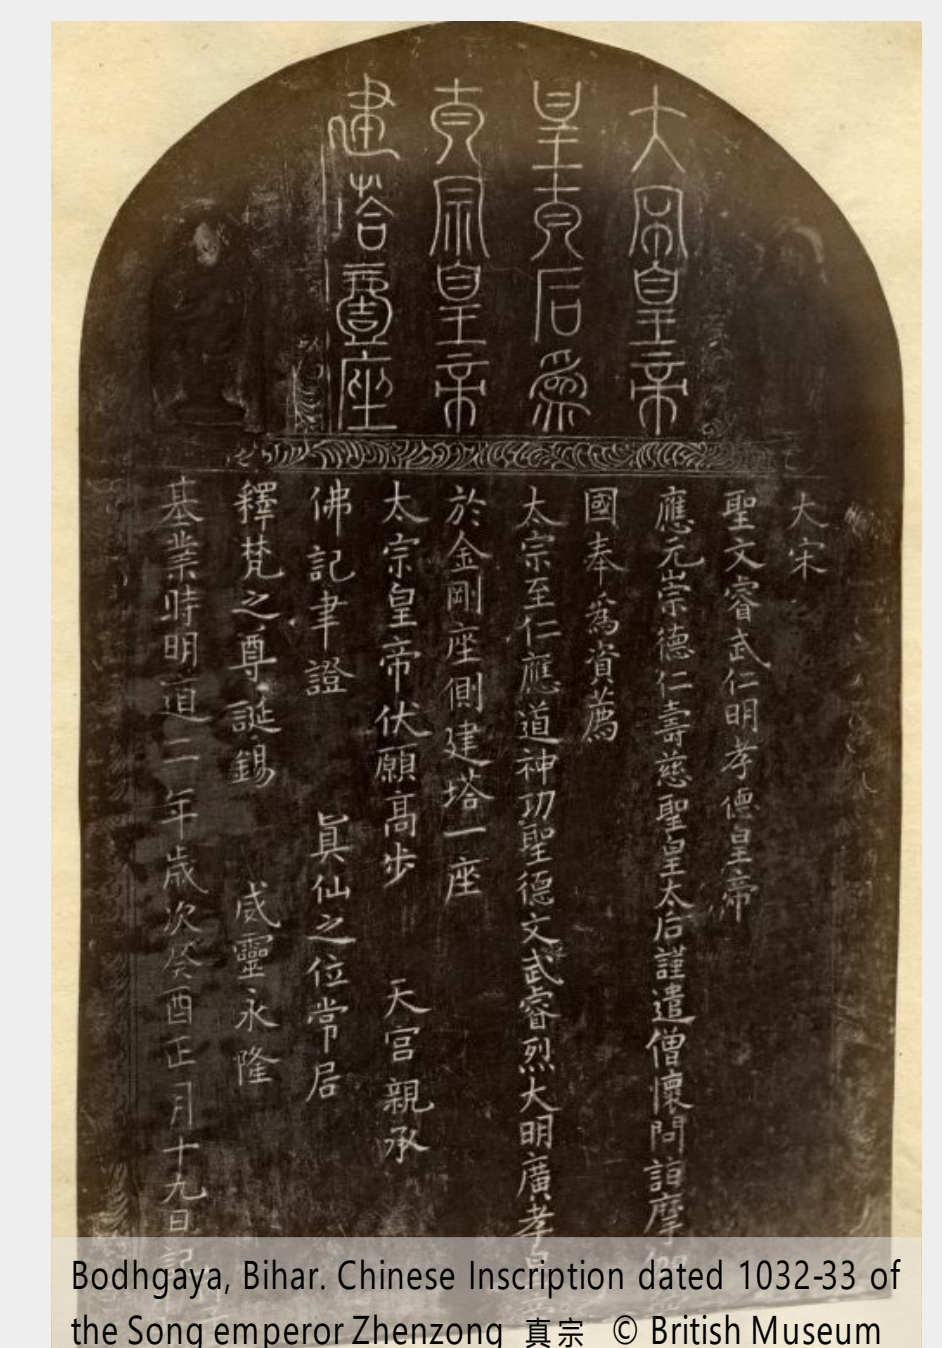 大宋皇帝
皇太后為
真宗皇帝
建塔壹座
大宋
聖文睿武仁明孝德皇帝
應元崇德仁壽慈聖皇太后謹遣僧懷問詣摩
國奉為資薦
太宗至仁應道神功聖德文武睿烈大明廣孝
於金剛座側建塔一座
太宗皇帝伏願高步 天宮親承
佛記聿證 眞仙之位常居
釋梵之尊誕錫 威靈永隆
基業時明道二年歲次癸酉正月十九日記
Bodhgaya, Bihar. Chinese Inscription dated 1032-33 of
the Song emperor Zhenzong 真宗 © British Museum